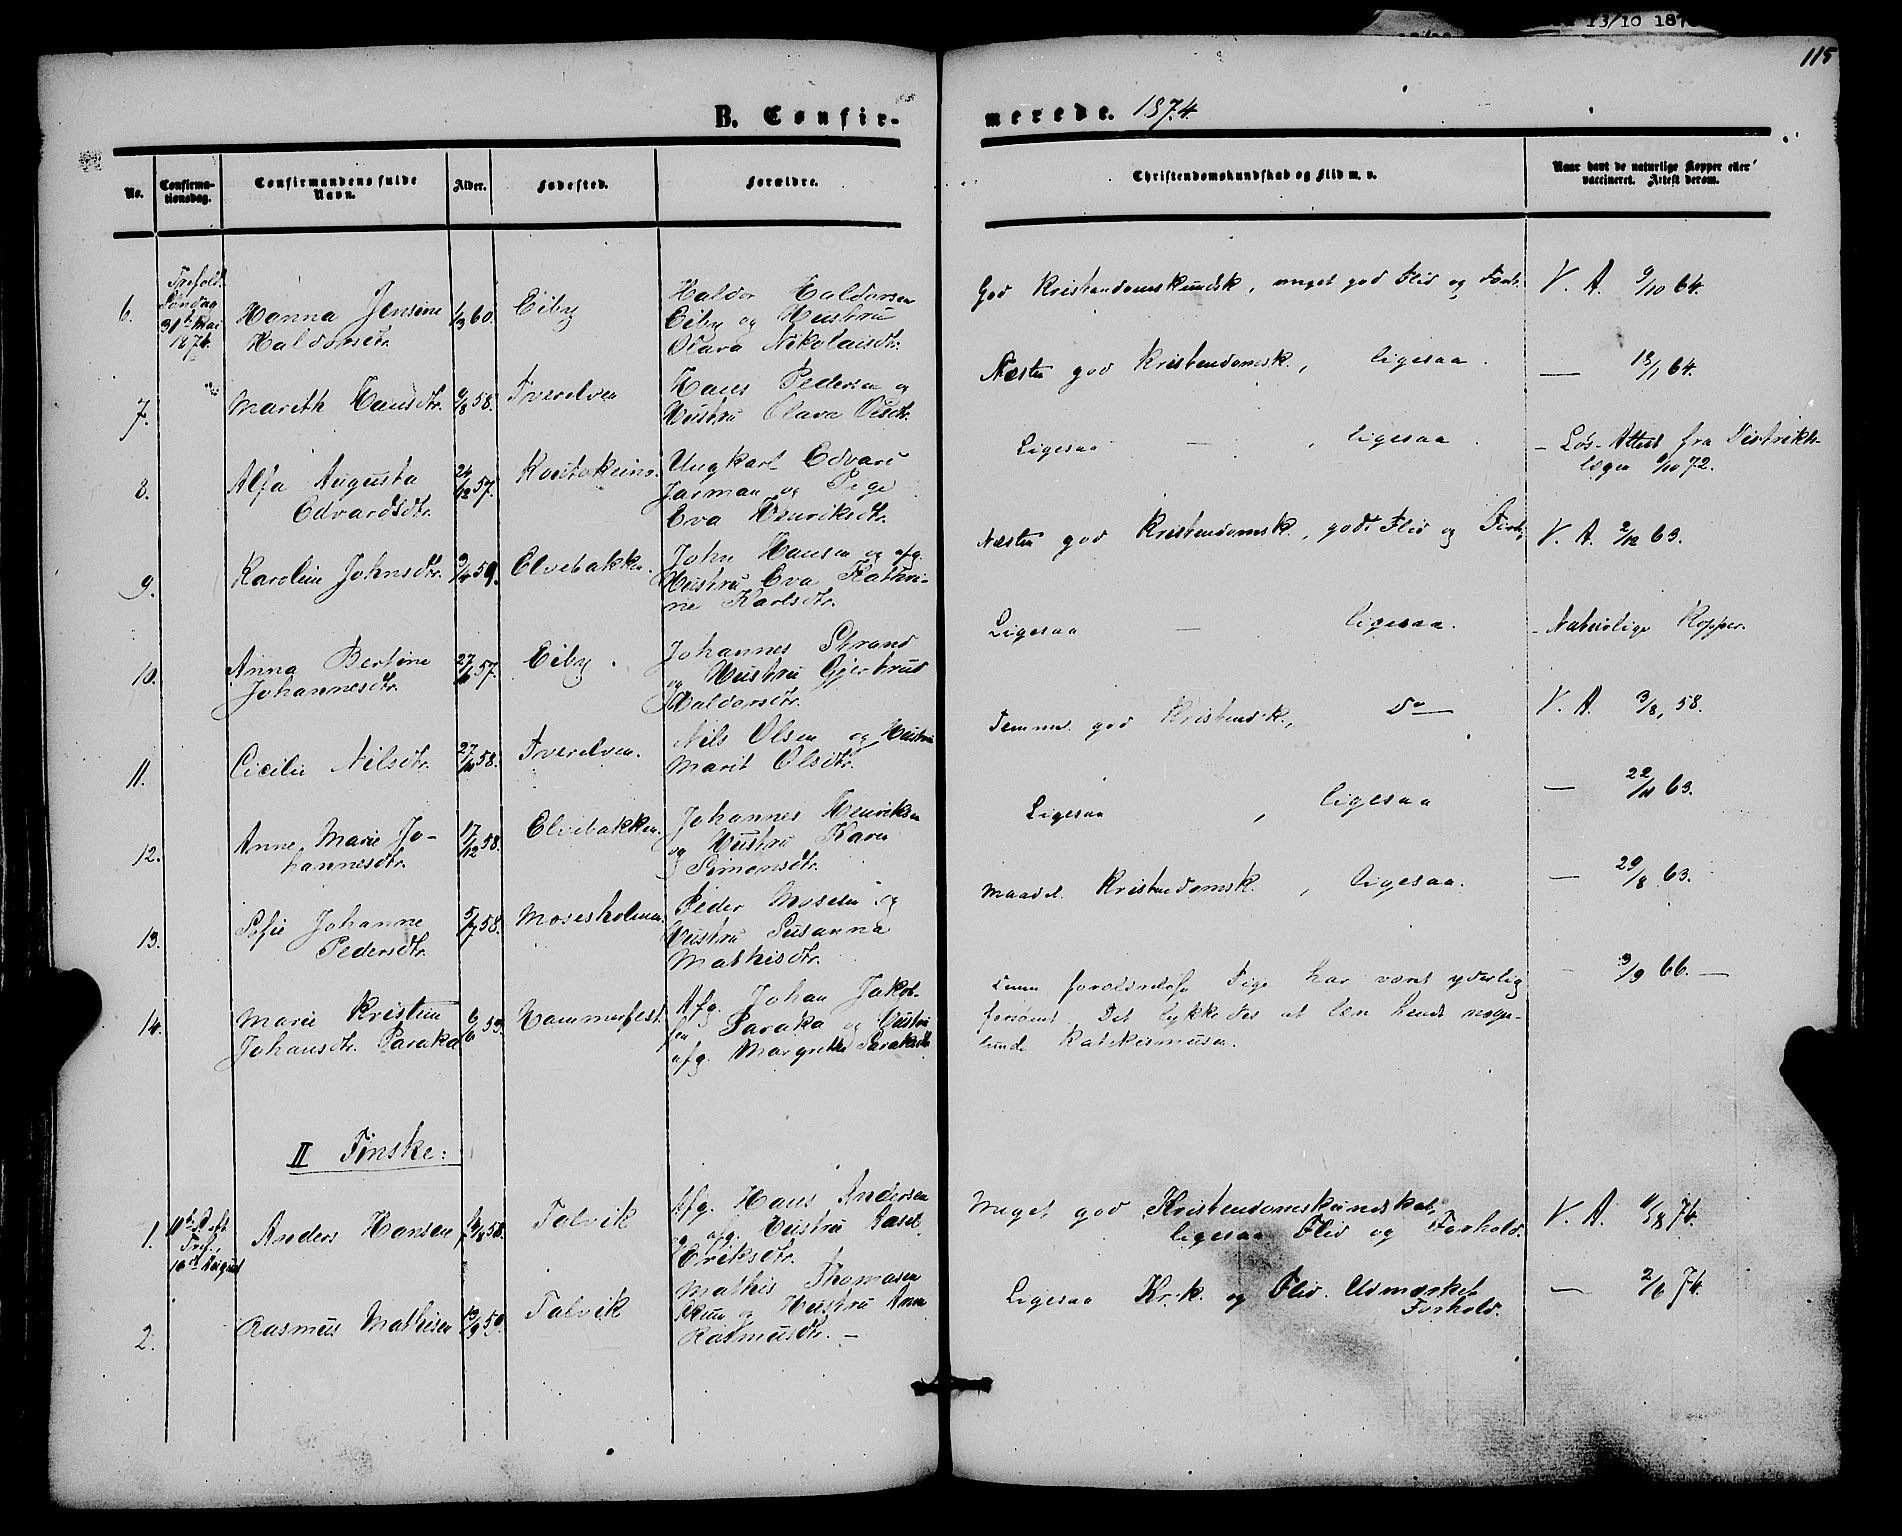 13/10 187
115
B. Confir-
merede. 1874
No.
Confirma-
tionsdag.
Confirmandens fulde
Navn.
Alder.
Fødested.
Forældre.
Christendomskundskab og Flid m. v.
Naar havt de naturlige Kopper eller
vaccineret. Attest derom.
6.
Trefold.
Søndag
31te Mai
1874.
Hanna Jensine
Haldorsdtr.
1/3 60.
Eiby
Haldor Haldorsen
Eiby og Hustru
Olava Nikolaisdtr.
God Kristendomskundsk, meget god Flid og Forh.
V. A. 9/10 64.
7.
Mareth Hansdtr.
9/8 58.
Tverelven
Hans Pedersen og
Hustru Olava Olsdtr.
Næsten god Kristendomsk., ligesaa.
— 13/1 64.
8.
Alfa Augusta
Edvardsdtr.
24/12 57.
Koutokeino.
Ungkarl Edvard
Jarman og Pige
Eva Henriksdtr.
Ligesaa — , ligesaa.
- Løs-Attest fra Distrikts-
lægen 9/10 72.
9.
Karolin Johnsdtr.
3/4 59.
Elvebakken.
John Hansen og afg.
Hustru Eva Kathri-
ne Karlsdtr.
Næsten god Kristendomsk., godt Flid og Forh.
V. A. 2/12 63.
10.
Anna Bertine
Johannesdtr.
27/11 57.
Eiby.
Johannes Strand
og Hustru Gjertrud
Haldorsdtr.
Ligesaa — ligesaa.
- Naturlige Kopper.
11.
Cicilie Nilsdtr.
27/10 58.
Tverelven.
Nils Olsen og Hustru
Marit Olsdtr.
Temmel. god Kristendsk., Do —
V. A. 3/8, 58.
12.
Anne Marie Jo-
hannesdtr.
17/12 58.
Elvebakken.
Johannes Henriksen
og Hustru Karen
Simonsdtr.
Ligesaa , ligesaa
— 22/11 63.
13.
Sofie Johanne
Pedersdtr.
5/7 58.
Mosesholmen.
Peder Mosesen og
Hustru Susanna
Mathisdtr.
Maadel. Kristendomsk. , ligesaa.
— 29/8 63.
14.
Marie Kristine
Johansdtr. Paraka
6/6 53.
Hammerfest.
Afg. Johan Jakob-
sen Paraka og Hustru
afg. Margrethe
Denne forældreløse Pige har været yderlig
forsømt. Det lykkedes at lære hende noge-
lunde Katekismusen.
— 3/9 66. —
II Finske:
1.
Anders Hansen
Talvik
Afg. Hans Andersen
og afg. Hustru
Eriksdtr.
Meget god Kristendomskundskab,
ligesaa Flid og Forhold.
V. A. 11/8 74.
2.
Rasmus Mathisen
13/9 59.
Talvik
Mathis Thomasen
og Hustru Anna
Rasmusdtr. —
Ligesaa Kr.k. og Flid. Udmærket
Forhold.
— 2/6 74.